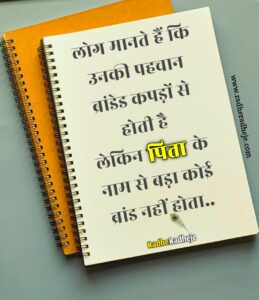 लोग मानते हैं कि
उनकी पहचान
ब्रांडेड कपड़ों से
होती है
लेकिन पिता के
नाम से बड़ा कोई
ब्रांड नहीं होता..
RadheRadheje
www.radheradheje.com